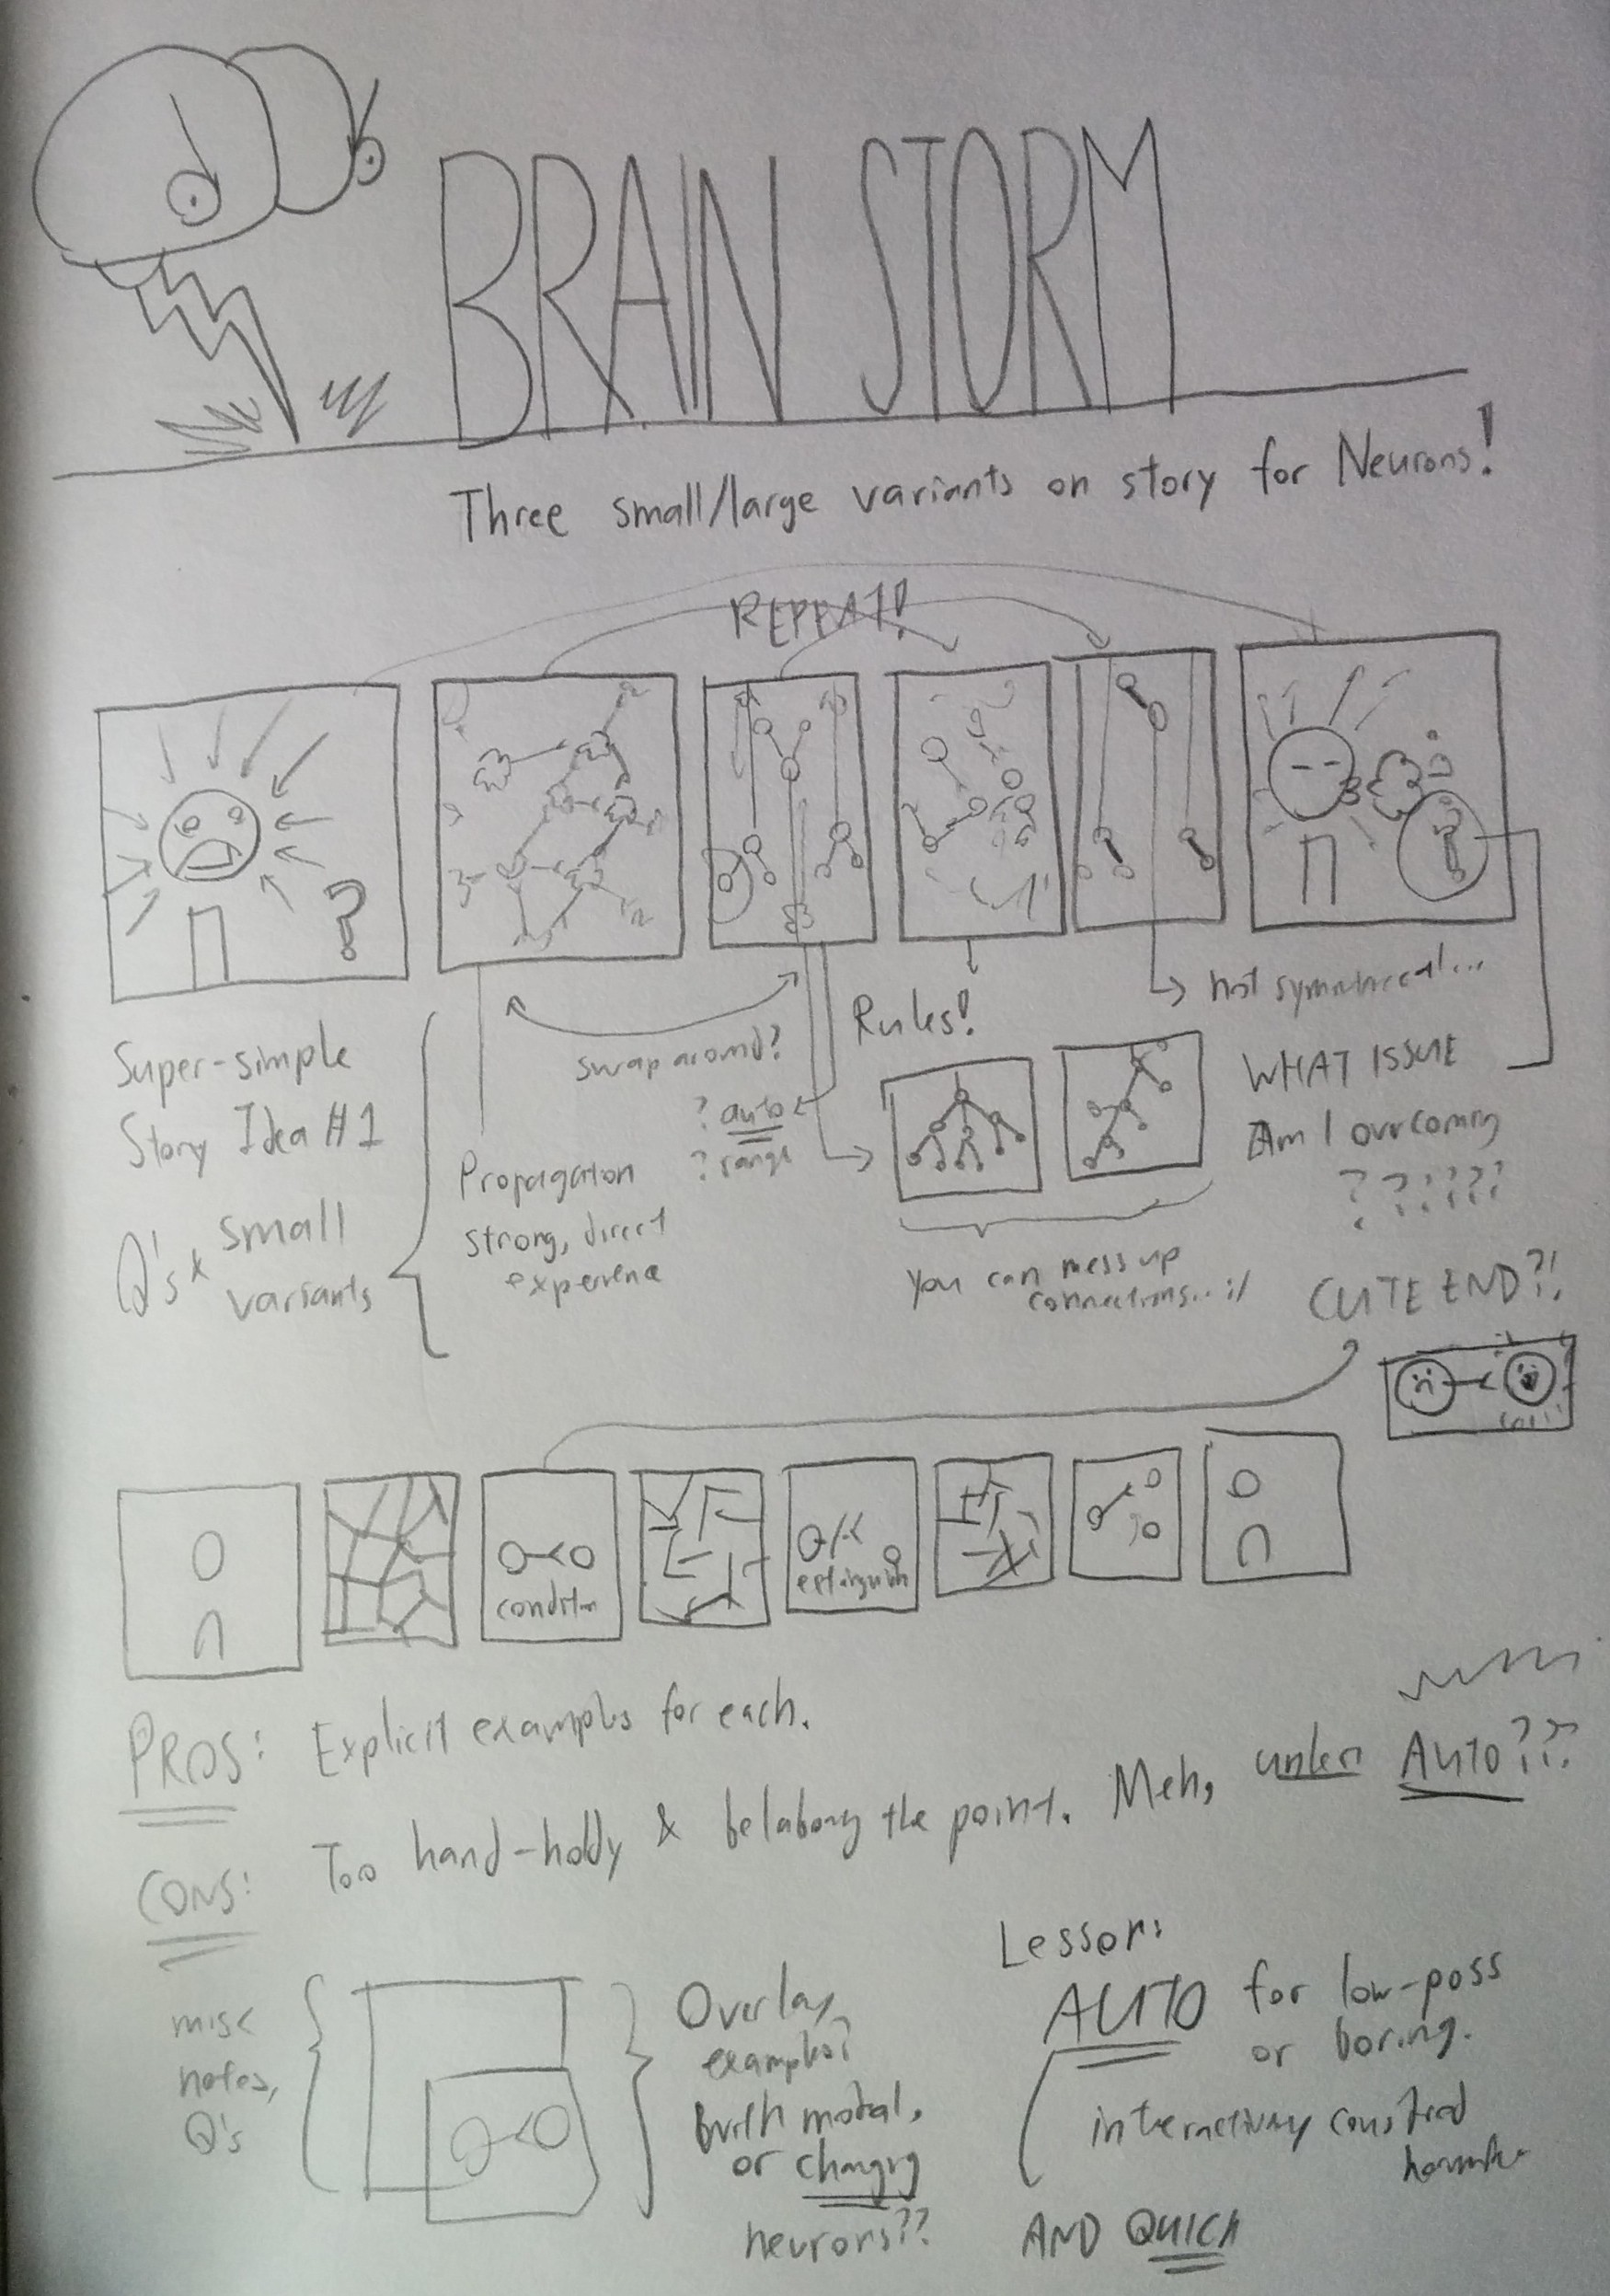 BRAIN STORM
Three small/large variants on story for Neurons!
REPEAT!
?
Super-simple
Story Idea #1
Q's &
small
variants
swap around?
Rules!
not symmetrical...
? auto
? range
Propagation
strong, direct
experience
You can mess up
connections... :/
WHAT ISSUE
Am I overcoming
??????
CUTE END?!
condition
extinguish
PROS: Explicit examples for each.
CONS: Too hand-holdy & belaboring the point. Meh, unless AUTO???
misc
notes,
Q's
Overlay
examples?
both modal,
or changing
neurons??
Lesson:
AUTO for low-poss
or boring.
interactivity considered
harmful
AND QUICK